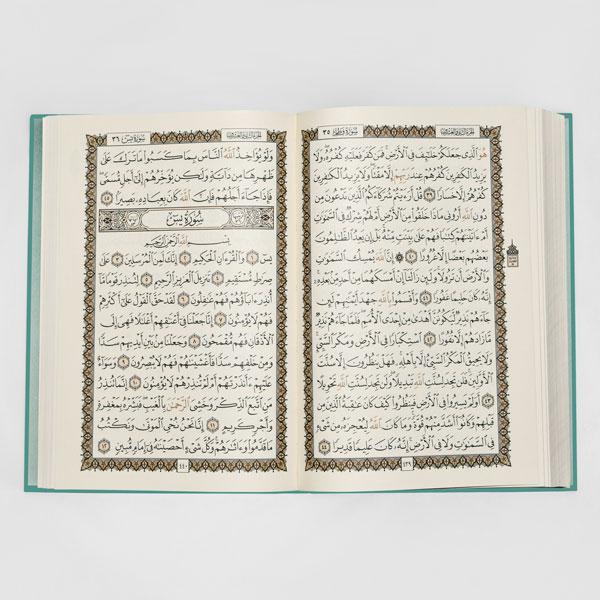 الجزء الثاني والعشرون
سُورَةُ فَاطِرٍ ٣٥
هُوَ ٱلَّذِى جَعَلَكُمْ خَلَٰٓئِفَ فِى ٱلْأَرْضِ فَمَن كَفَرَ فَعَلَيْهِ كُفْرُهُۥ وَلَا
يَزِيدُ ٱلْكَٰفِرِينَ كُفْرُهُمْ عِندَ رَبِّهِمْ إِلَّا مَقْتًا وَلَا يَزِيدُ ٱلْكَٰفِرِينَ
كُفْرُهُمْ إِلَّا خَسَارًا ٣٩ قُلْ أَرَءَيْتُمْ شُرَكَآءَكُمُ ٱلَّذِينَ تَدْعُونَ مِن
دُونِ ٱللَّهِ أَرُونِى مَاذَا خَلَقُوا۟ مِنَ ٱلْأَرْضِ أَمْ لَهُمْ شِرْكٌ فِى ٱلسَّمَٰوَٰتِ
أَمْ ءَاتَيْنَٰهُمْ كِتَٰبًا فَهُمْ عَلَىٰ بَيِّنَتٍ مِّنْهُ بَلْ إِن يَعِدُ ٱلظَّٰلِمُونَ
بَعْضُهُم بَعْضًا إِلَّا غُرُورًا ٤٠ ۞ إِنَّ ٱللَّهَ يُمْسِكُ ٱلسَّمَٰوَٰتِ
وَٱلْأَرْضَ أَن تَزُولَا وَلَئِن زَالَتَآ إِنْ أَمْسَكَهُمَا مِنْ أَحَدٍ مِّنۢ بَعْدِهِۦٓ
إِنَّهُۥ كَانَ حَلِيمًا غَفُورًا ٤١ وَأَقْسَمُوا۟ بِٱللَّهِ جَهْدَ أَيْمَٰنِهِمْ لَئِن
جَآءَهُمْ نَذِيرٌ لَّيَكُونُنَّ أَهْدَىٰ مِنْ إِحْدَى ٱلْأُمَمِ فَلَمَّا جَآءَهُمْ نَذِيرٌ
مَّا زَادَهُمْ إِلَّا نُفُورًا ٤٢ ٱسْتِكْبَارًا فِى ٱلْأَرْضِ وَمَكْرَ ٱلسَّيِّئِ
وَلَا يَحِيقُ ٱلْمَكْرُ ٱلسَّيِّئُ إِلَّا بِأَهْلِهِۦ فَهَلْ يَنظُرُونَ إِلَّا سُنَّتَ
ٱلْأَوَّلِينَ فَلَن تَجِدَ لِسُنَّتِ ٱللَّهِ تَبْدِيلًا وَلَن تَجِدَ لِسُنَّتِ ٱللَّهِ تَحْوِيلًا
٤٣ أَوَلَمْ يَسِيرُوا۟ فِى ٱلْأَرْضِ فَيَنظُرُوا۟ كَيْفَ كَانَ عَٰقِبَةُ ٱلَّذِينَ مِن
قَبْلِهِمْ وَكَانُوٓا۟ أَشَدَّ مِنْهُمْ قُوَّةً وَمَا كَانَ ٱللَّهُ لِيُعْجِزَهُۥ مِن شَىْءٍ
فِى ٱلسَّمَٰوَٰتِ وَلَا فِى ٱلْأَرْضِ إِنَّهُۥ كَانَ عَلِيمًا قَدِيرًا ٤٤
٤٣٩
الجزء الثاني والعشرون
سُورَةُ يسٓ ٣٦
وَلَوْ يُؤَاخِذُ ٱللَّهُ ٱلنَّاسَ بِمَا كَسَبُوا۟ مَا تَرَكَ عَلَىٰ
ظَهْرِهَا مِن دَآبَّةٍ وَلَٰكِن يُؤَخِّرُهُمْ إِلَىٰٓ أَجَلٍ مُّسَمًّى
فَإِذَا جَآءَ أَجَلُهُمْ فَإِنَّ ٱللَّهَ كَانَ بِعِبَادِهِۦ بَصِيرًۢا ٤٥
سُورَةُ يسٓ
بِسْمِ ٱللَّهِ ٱلرَّحْمَٰنِ ٱلرَّحِيمِ
يسٓ ١ وَٱلْقُرْءَانِ ٱلْحَكِيمِ ٢ إِنَّكَ لَمِنَ ٱلْمُرْسَلِينَ ٣ عَلَىٰ
صِرَٰطٍ مُّسْتَقِيمٍ ٤ تَنزِيلَ ٱلْعَزِيزِ ٱلرَّحِيمِ ٥ لِتُنذِرَ قَوْمًا مَّآ
أُنذِرَ ءَابَآؤُهُمْ فَهُمْ غَٰفِلُونَ ٦ لَقَدْ حَقَّ ٱلْقَوْلُ عَلَىٰٓ أَكْثَرِهِمْ
فَهُمْ لَا يُؤْمِنُونَ ٧ إِنَّا جَعَلْنَا فِىٓ أَعْنَٰقِهِمْ أَغْلَٰلًا فَهِىَ إِلَى
ٱلْأَذْقَانِ فَهُم مُّقْمَحُونَ ٨ وَجَعَلْنَا مِنۢ بَيْنِ أَيْدِيهِمْ سَدًّا
وَمِنْ خَلْفِهِمْ سَدًّا فَأَغْشَيْنَٰهُمْ فَهُمْ لَا يُبْصِرُونَ ٩ وَسَوَآءٌ
عَلَيْهِمْ ءَأَنذَرْتَهُمْ أَمْ لَمْ تُنذِرْهُمْ لَا يُؤْمِنُونَ ١٠ إِنَّمَا تُنذِرُ
مَنِ ٱتَّبَعَ ٱلذِّكْرَ وَخَشِىَ ٱلرَّحْمَٰنَ بِٱلْغَيْبِ فَبَشِّرْهُ بِمَغْفِرَةٍ
وَأَجْرٍ كَرِيمٍ ١١ إِنَّا نَحْنُ نُحْىِ ٱلْمَوْتَىٰ وَنَكْتُبُ
مَا قَدَّمُوا۟ وَءَاثَٰرَهُمْ وَكُلَّ شَىْءٍ أَحْصَيْنَٰهُ فِىٓ إِمَامٍ مُّبِينٍ ١٢
٤٤٠